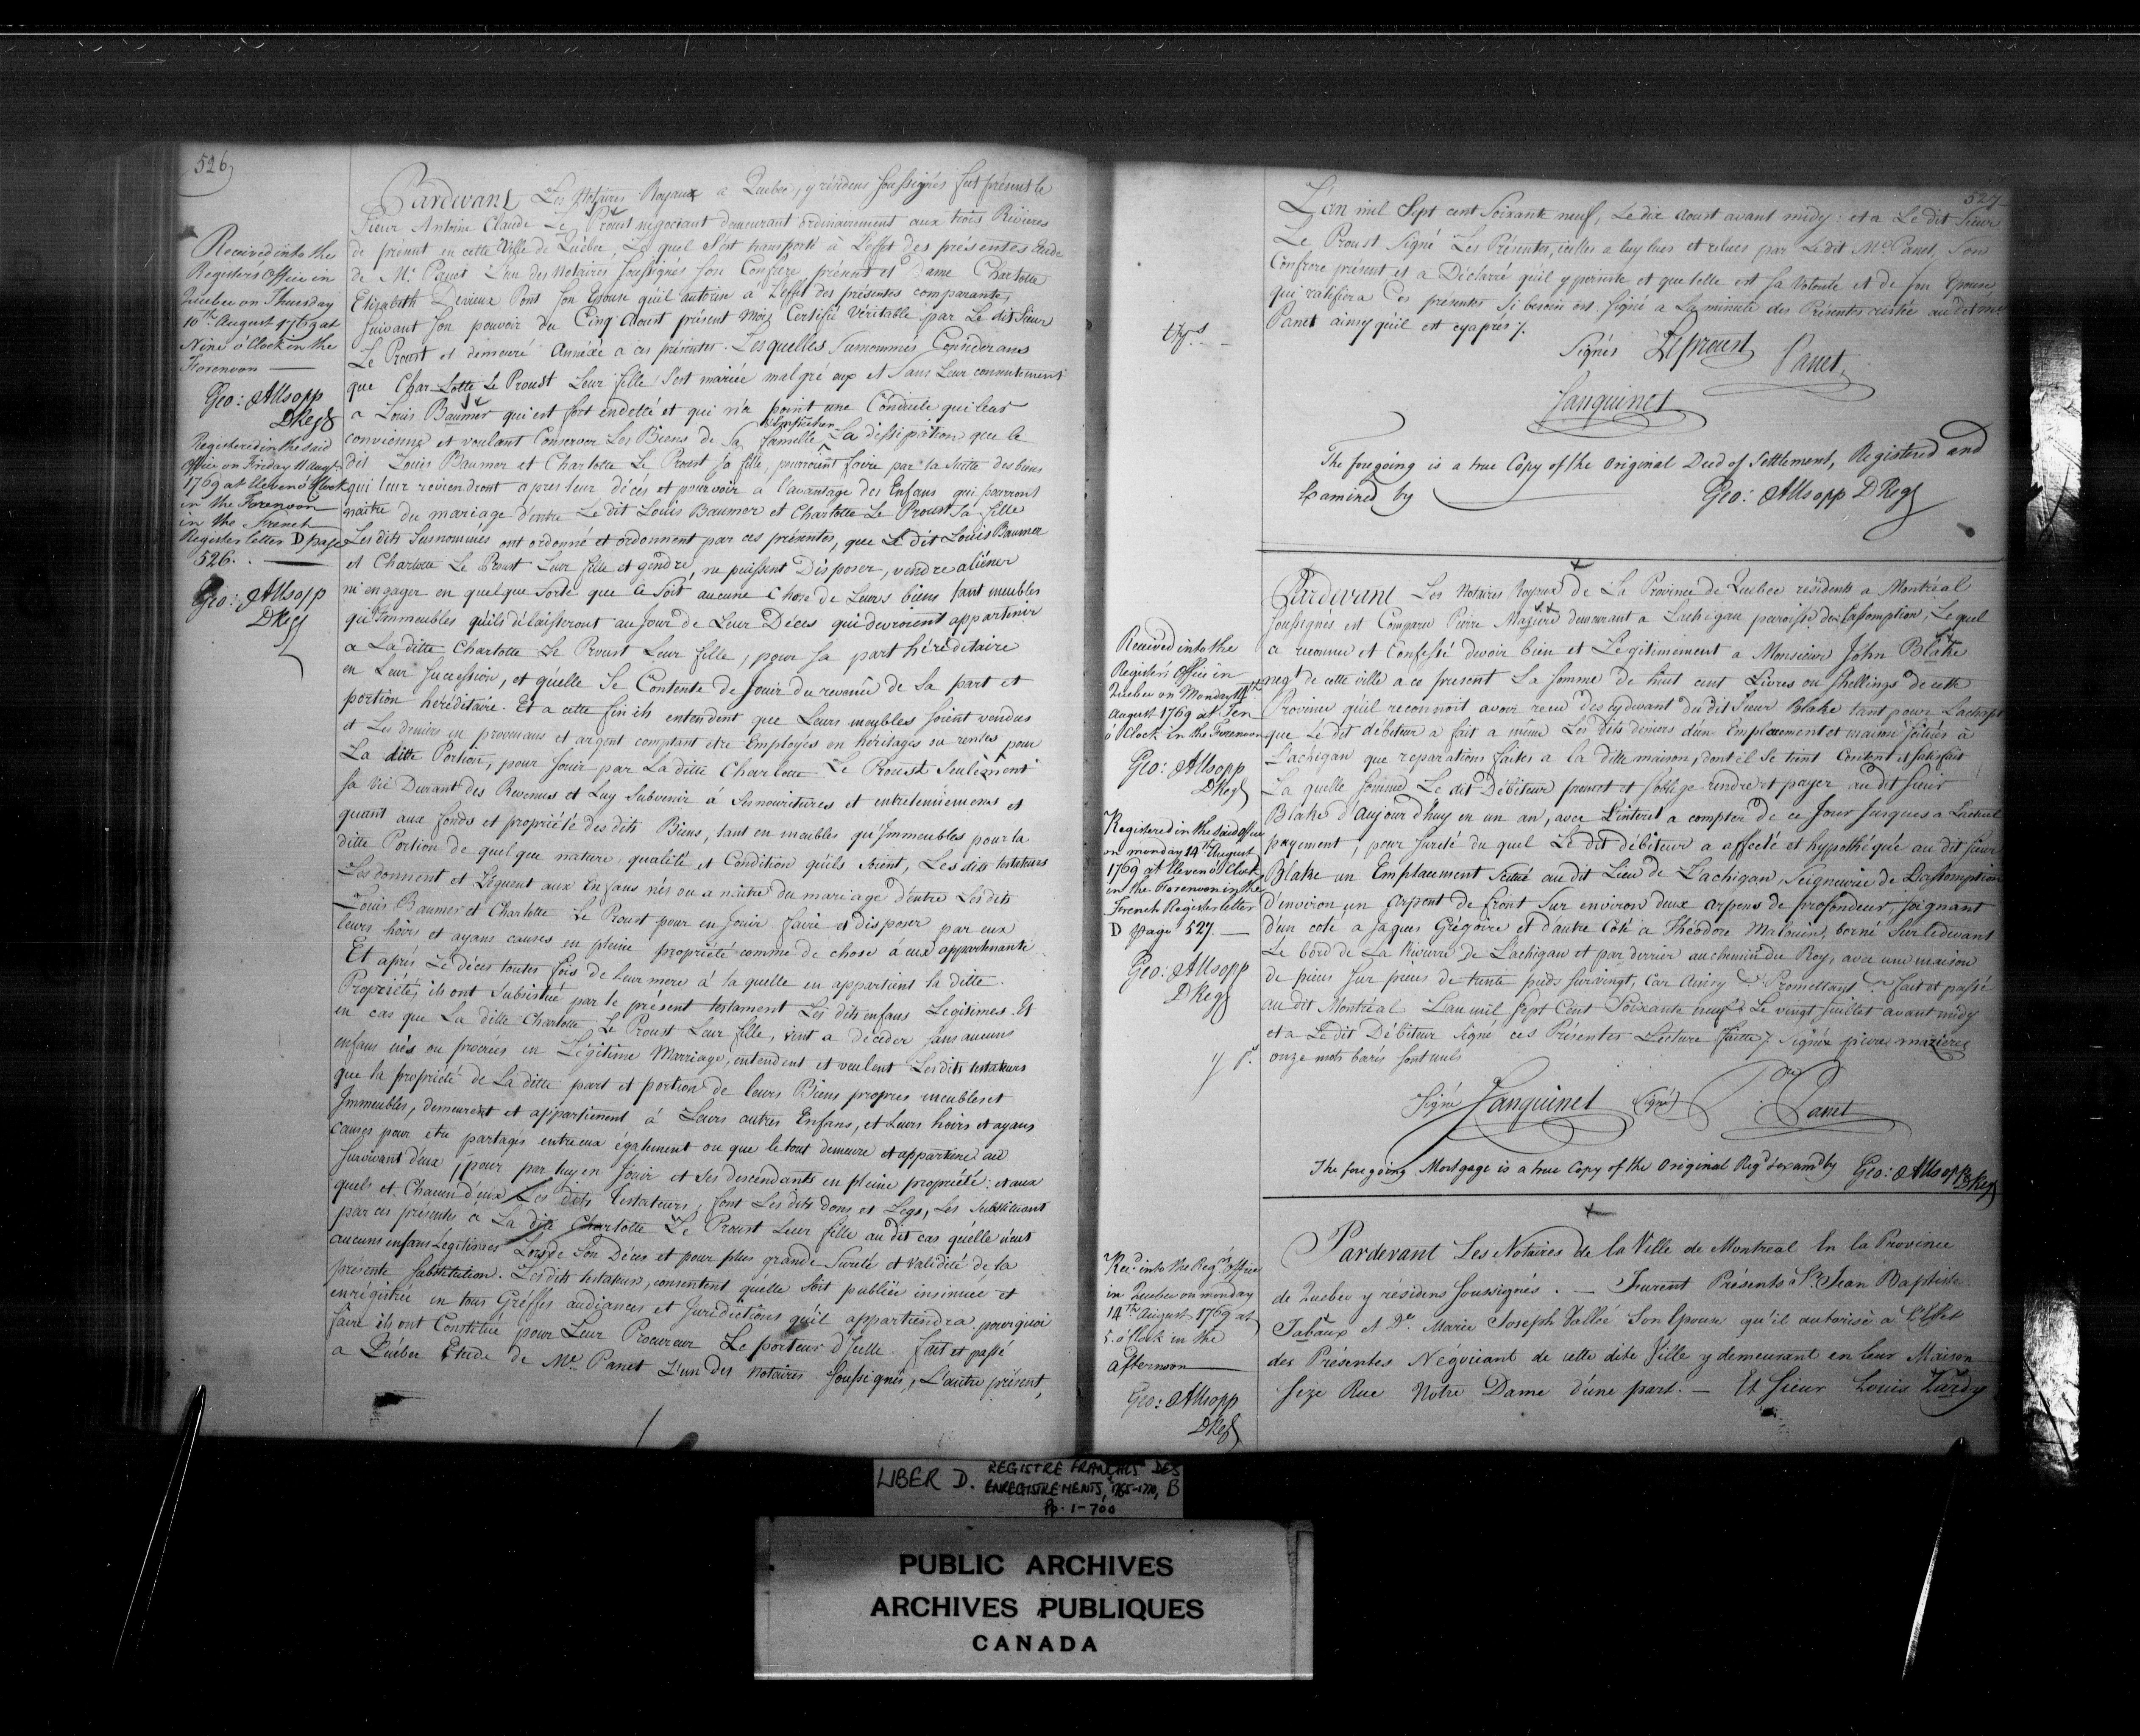 526
Received into the
Registers Office in
Quebec on Thursday
10th August 1769 at
Nine o'Clock in the
Forenoon
Geo: Allsopp
DRegr
Registered in the said
Office on Friday 11 Augt
1769 at Eleven o'Clock
in the Forenoon
in the French
Register letter D page
526.
Geo: Allsopp
DRegr
Pardevant Les Notaires Royaux a Quebec, y résidens soussignés fut présent le
Sieur Antoine Claude Le Proust negociant demeurant ordinairement aux trois Rivieres
de présent en cette Ville de Québec, Le quel s'est transporté à L'effet des présentes Etude
de Mr. Panet L'un des Notaires soussignés son Confrere présent et Dame Charlotte
Elizabeth Derieux Pont son Epouse qu'il autorise a L'effet des présentes comparante,
suivant son pouvoir du Cinq Aoust présent mois, Certifié Véritable par Le dit Sieur
Le Proust et demeuré Annéxé a ces présentes. Les quelles Surnommés Considerans
que Charlotte Le Proust Leur fille s'est mariée malgré eux et sans Leur consentement
a Louis Baumer qui est fort endetté et qui n'a point une Conduite qui leur
convienne et voulant Conserver Les Biens de Sa famille La dissipation que le
dit Louis Baumer et Charlotte Le Proust sa fille, pourroient faire par la suitte des biens
qui leur reviendront apres leur décés et pourvoir a l'avantage des Enfans qui pourront
naitre du mariage d'entre Le dit Louis Baumer et Charlotte Le Proust sa fille
Les dits Susnommés ont ordonné et ordonnent par ces présentes, que Le dit Louis Baumer
et Charlotte Le Proust Leur fille et gendre, ne puissent Disposer, vendre aliéner
ni engager en quelque Sorte que ce Soit aucune Chose de Leurs biens tant meubles
qu'Immeubles qu'ils délaisseront au Jour de Leur Décés qui devroient appartenir
a La ditte Charlotte Le Proust Leur fille, pour sa part héréditaire
en Leur Succession, et qu'elle Se Contente de Jouir du revenû de sa part et
portion héréditaire. Et a cette fin ils entendent que Leurs meubles soient vendus
et Les deniers en provenans et argent comptant etre Employés en héritages ou rentes pour
La ditte Portion, pour Jouir par La ditte Charlotte Le Proust Seulement
sa vie Durant des Revenus et Luy Subvenir a ses nouritures et entretenemens et
quant aux fonds et propriété des dits Biens, tant en meubles qu'Immeubles pour la
ditte Portion de quelque nature, qualité et Condition qu'ils soient, Les dits testateurs
Les donnent et Lèguent aux Enfans nés ou a naitre du mariage d'entre Les dits
Louis Baumer et Charlotte Le Proust pour en Jouir faire et disposer par eux
leurs hoirs et ayans causes en pleine propriété comme de chose à eux appartenante
Et après Le décés toutes fois de leur mere à la quelle en appartient la ditte
Propriété, ils ont Substitué par le présent testament Les dits enfans Legitimes. Et
en cas que La ditte Charlotte Le Proust Leur fille, vint a décéder sans aucuns
enfans nés ou procréés en Légitime Marriage, entendent et veulent Les dits testateurs
que la propriété de La ditte part et portion de leurs Biens propres meubles et
Immeubles, demeurent et appartiennent à Leurs autres Enfans, et Leurs hoirs et ayans
causes pour etre partagés entre eux également ou que le tout demeure et appartiene au
survivant d'eux, pour par luy en Jouir et ses descendants en pleine propriété: et aux
quels et Chacun d'eux Les dits testateurs, font Les dits dons et Legs, Les substituant
par ces présentes a La dite Charlotte Le Proust Leur fille au dit cas qu'elle n'eut
aucuns enfans Legitimes Lors de Son Décés et pour plus grande Sureté et validité de la
presente substitution. Les dits testateurs, consentent qu'elle Soit publiée insinuée et
enrégistrée en tous Gréffes audiances et Juridictions qu'il appartiendra pourquoi
faire ils ont Constitué pour Leur Procureur Le porteur d'Icelle. fait et passé
a Québec Etude de Mr. Panet L'un des notaires soussignés, L'autre présent,
527
L'an mil Sept cent Soixante neuf, Le dix aoust avant midy: et a Le dit Sieur
Le Proust Signé Les Présentes, icelles a luy lues et relues par Le dit Mr. Panet, Son
Confrere présent, et a Déclaré qu'il y persiste et que telle est sa Volonté et de son Epouse
qui ratifiera Ces présentes si besoin est signé a La minute des Présentes restée au dit Mr
Panet ainsy qu'il est cy après /.
Signés LeProust Panet
Sanguinet
The foregoing is a true Copy of the Original Deed of Settlement, Registered and
Examined by Geo: Allsopp DRegr
Received into the
Registers Office in
Quebec on Monday 14th
August 1769 at Ten
o'Clock in the Forenoon
Geo: Allsopp
DRegr
Registered in the said Office
on monday 14th August
1769 at Eleven o'Clock
in the Forenoon in the
French Register letter
D page 527.
Geo: Allsopp
DRegr
Pardevant Les Notaires Royaux de La Province de Quebec résidents a Montréal
soussignés est Comparu Pierre Maziere demeurant a Lachigan paroisse de Lassomption, Le quel
a reconnu et Confessé devoir bien et Légitimement a Monsieur John Blake
negt de cette ville a ce present La somme de huit cent Livres ou shellings de cette
Province qu'il reconnoit avoir recu des cydevant du dit Sieur Blake tant pour L'achapt
que Le dit débiteur a fait a même Les dits deniers d'un Emplacement et maison scitués à
L'achigan que reparations faites a la ditte maison, dont il se tient Content et satisfait
La quelle somme Le dit Débiteur promet et s'oblige rendre et payer au dit Sieur
Blake d'aujourd'huy en un an, avec L'interet a compter de ce Jour Jusques a L'actuel
payement, pour sureté du quel Le dit débiteur a affecté et hypothéqué au dit sieur
Blake un Emplacement Scitué au dit Lieu de L'achigan, Seigneurie de Lassomption
d'environ un Arpent de front Sur environ deux Arpens de profondeur, Joignant
d'un coté a Jaques Grégoire et d'autre Côté a Théodore Malouin, borné Sur le devant
Le bord de La Riviere de L'achigan et par derrier au chemin du Roy, avec une maison
de pieces sur pieces de trente pieds sur vingt, Car Ainsy &a Promettant &a fait et passé
au dit Montréal L'an mil Sept Cent Soixante neuf Le vingt Juillet avant midy
et a Le dit Débiteur Signé ces Présentes Lecture faitte /. Signéx pierre maziere
onze mots barés sont nuls
Signé Sanguinet Signé Panet
The foregoing Mortgage is a true Copy of the Original Regd & examd by Geo: Allsopp DRegr
Recd into the Regrs Office
in Quebec on monday
14th August 1769 at
5. o'Clock in the
afternoon
Geo: Allsopp
DRegr
Pardevant Les Notaires de la Ville de Montreal En la Province
de Quebec y résidens soussignés. — Furent Présents Sr. Jean Baptiste
Tabaux et De Marie Joseph Vallié Son Epouse qu'il autorise à L'Effet
des Présentes Négociant de cette dite Ville y demeurant en leur Maison
size Rue Notre Dame d'une part. — Et sieur Louis Tardy
LIBER D. REGISTRE FRANÇAIS DES
ENREGISTREMENTS, 1765-1770, B
Pp. 1-700
PUBLIC ARCHIVES
ARCHIVES PUBLIQUES
CANADA